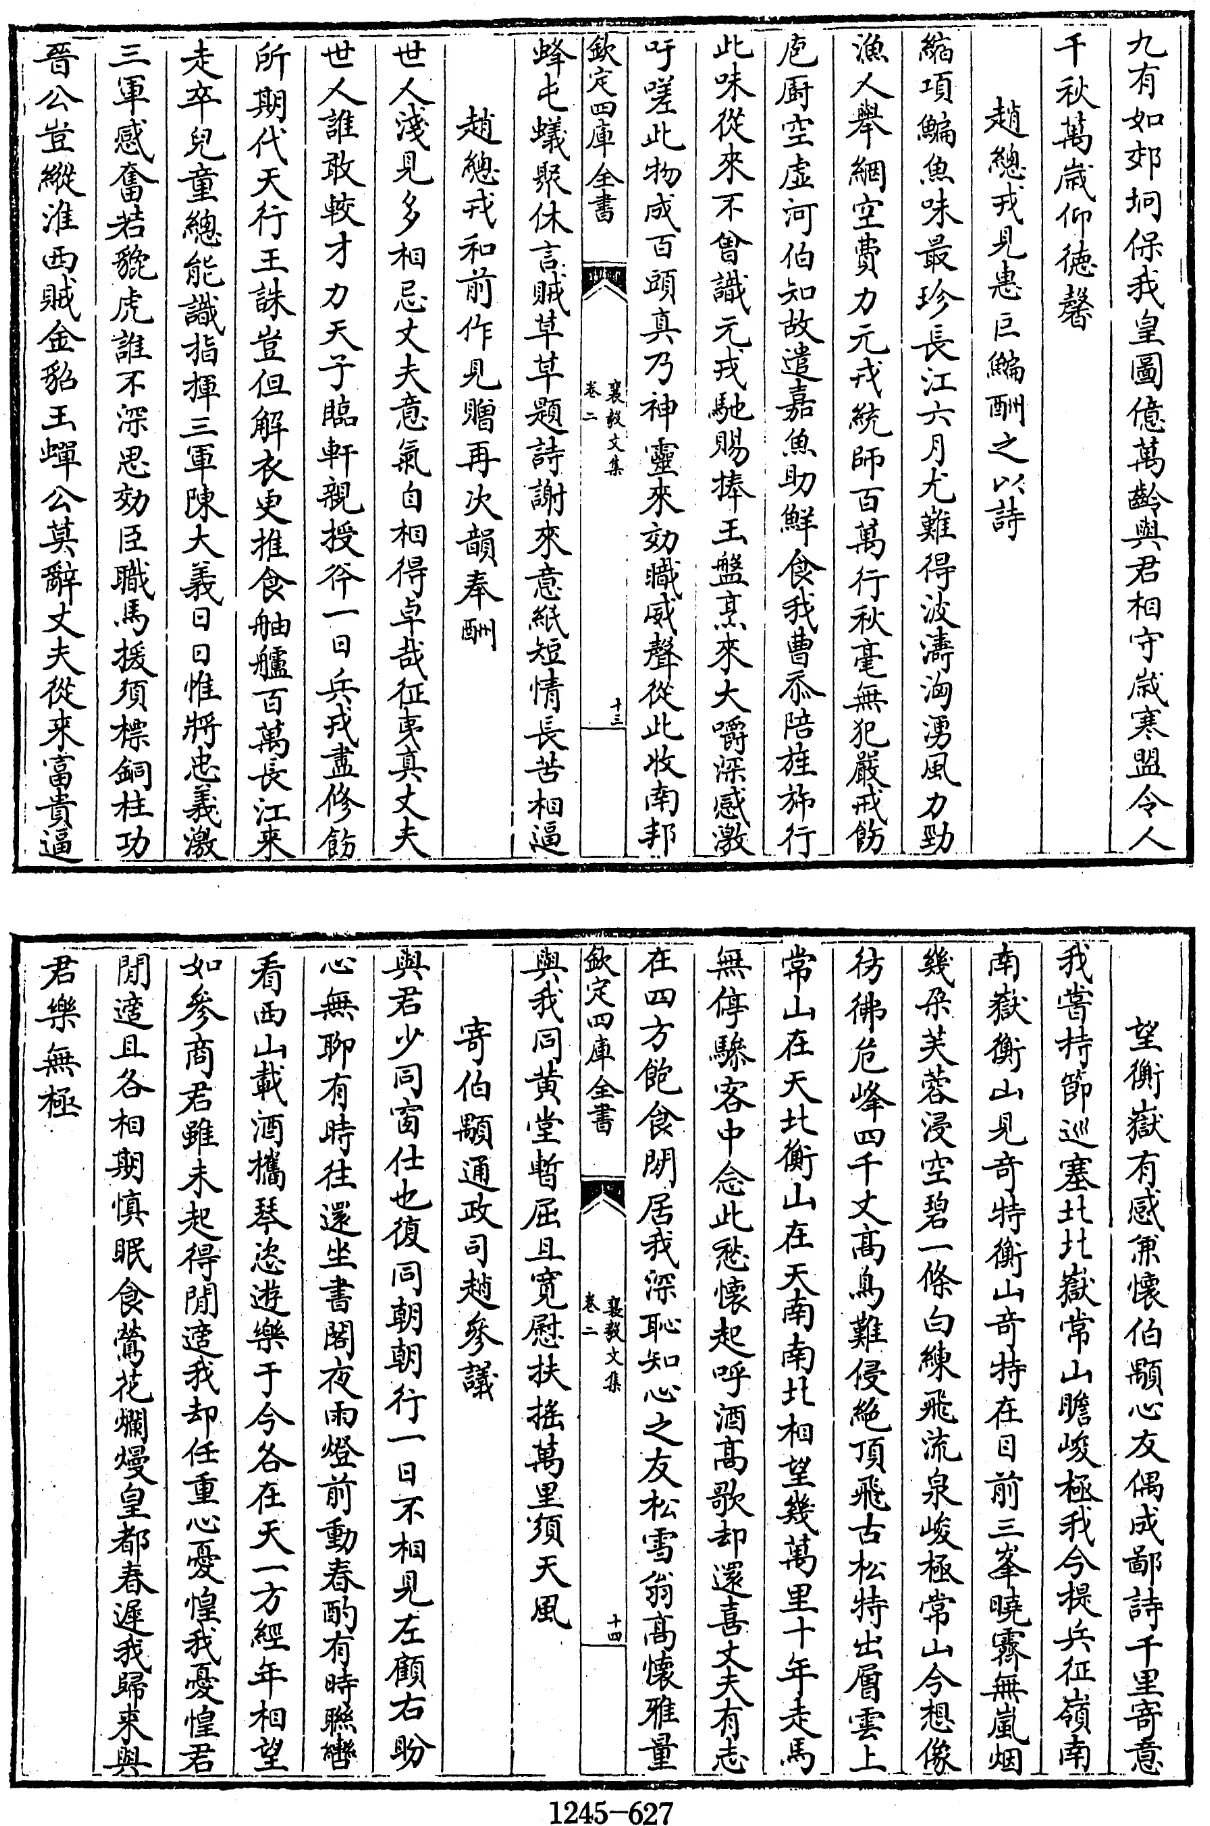 九有如郊坰保我皇圖億萬齡與君相守歲寒盟令人
千秋萬歲仰德馨
趙總戎見惠巨鯿酬之以詩
縮項鯿魚味最珍長江六月尤難得波濤洶湧風力勁
漁人舉網空費力元戎統師百萬行秋毫無犯嚴戒飭
庖廚空虛河伯知故遣嘉魚助鮮食我曹忝陪旌斾行
此味從來不曾識元戎馳賜捧玉盤烹來大嚼深感激
吁嗟此物成百頭真乃神靈來効職威聲從此收南邦
欽定四庫全書
襄毅文集
卷二
十三
蜂屯蟻聚休言賊草草題詩謝來意紙短情長苦相逼
趙總戎和前作見贈再次韻奉酬
世人淺見多相忌丈夫意氣自相得卓哉征夷真丈夫
世人誰敢較才力天子臨軒親授斧一日兵戎盡修飭
所期代天行王誅豈但解衣更推食舳艫百萬長江來
走卒兒童總能識指揮三軍陳大義日日惟將忠義激
三軍感奮若貔虎誰不深思効臣職馬援須標銅柱功
晉公豈縱淮西賊金貂玉蟬公莫辭丈夫從來富貴逼
望衡嶽有感兼懷伯顒心友偶成鄙詩千里寄意
我嘗持節巡塞北北嶽常山瞻峻極我今提兵征嶺南
南嶽衡山見奇特衡山奇特在目前三峯曉霽無嵐烟
幾朶芙蓉浸空碧一條白練飛流泉峻極常山今想像
彷彿危峰四千丈高鳥難侵絶頂飛古松特出層雲上
常山在天北衡山在天南南北相望幾萬里十年走馬
無停驂客中念此愁懷起呼酒高歌却還喜丈夫有志
在四方飽食閒居我深恥知心之友松雪翁高懷雅量
欽定四庫全書
襄毅文集
卷二
十四
與我同黄堂暫屈且寛慰扶摇萬里須天風
寄伯顒通政司趙參議
與君少同窗仕也復同朝朝行一日不相見左顧右盼
心無聊有時往還坐書閣夜雨燈前動春酌有時聯轡
看西山載酒攜琴恣遊樂于今各在天一方經年相望
如參商君雖未起得閒適我却任重心憂惶我憂惶君
閒適且各相期慎眠食鶯花爛熳皇都春遲我歸來與
君樂無極
1245-627